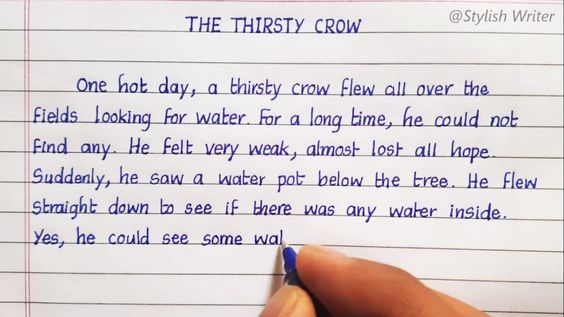 @Stylish Writer
THE THIRSTY CROW
One hot day, a thirsty crow flew all over the
fields looking for water. For a long time, he could not
find any. He felt very weak, almost lost all hope.
Suddenly, he saw a water pot below the tree. He flew
straight down to see if there was any water inside.
Yes, he could see some wat